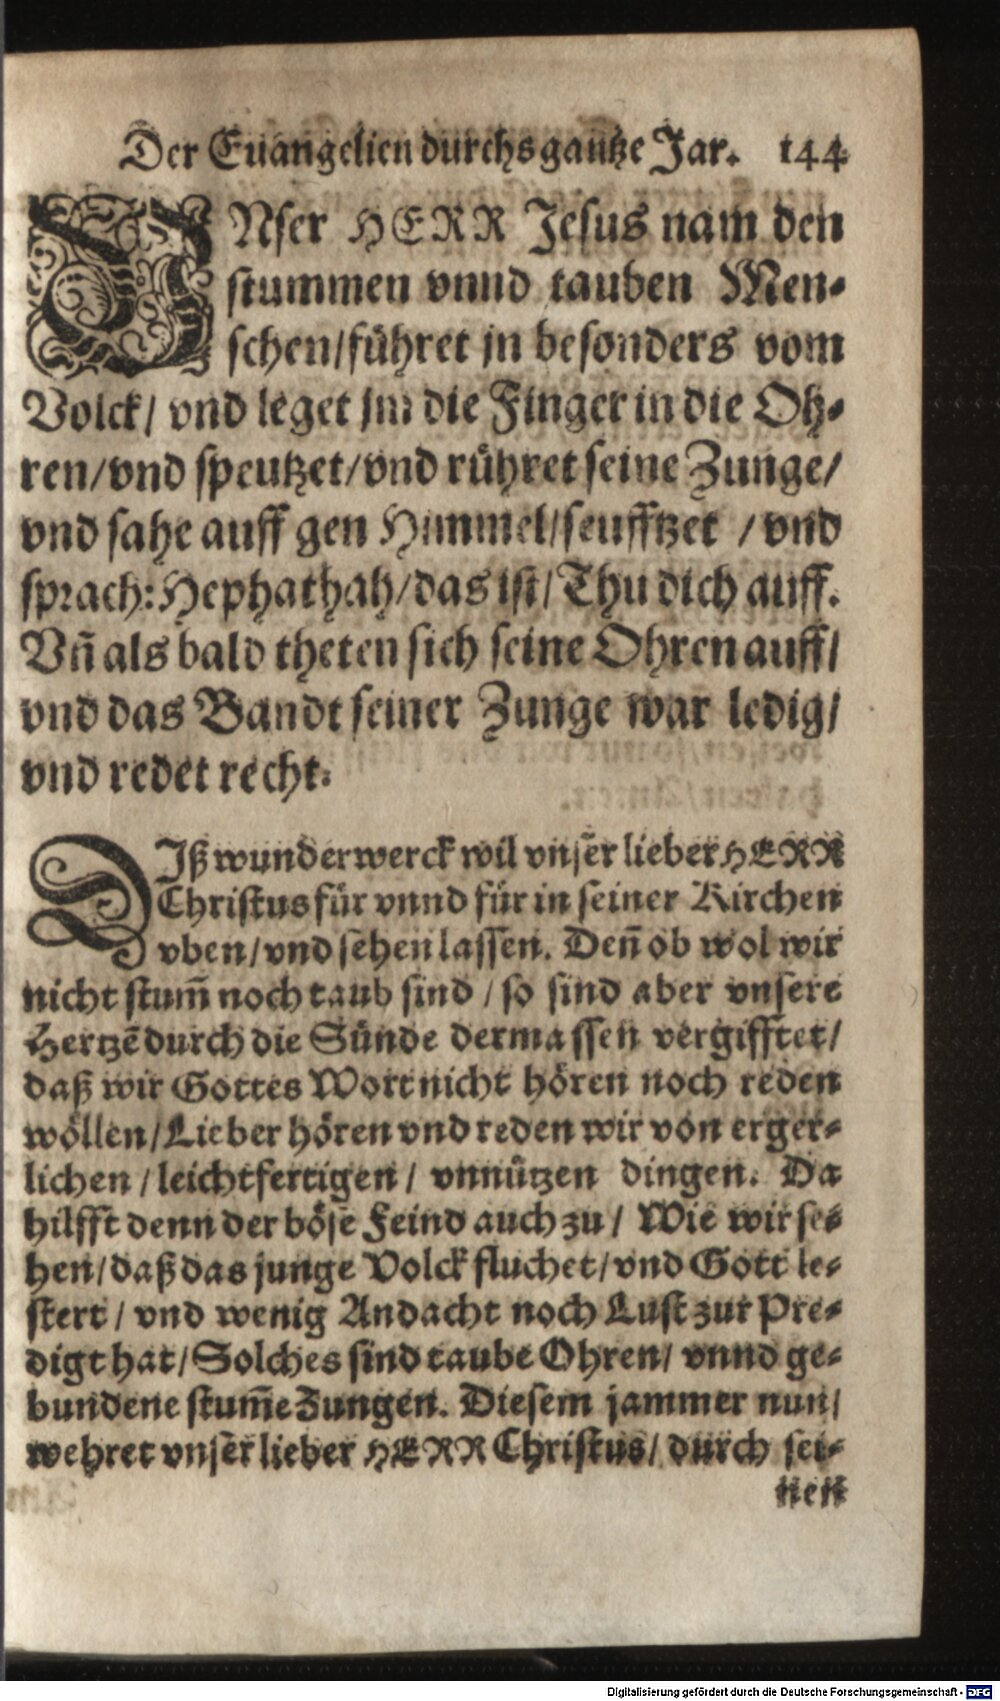 Der Euangelien durchs gantze Jar. 144
VNser HERR Jesus nam den
stummen vnnd tauben Men-
schen/führet jn besonders vom
Volck/ vnd leget jm die Finger in die Oh-
ren/vnd speutzet/vnd rühret seine Zunge/
vnd sahe auff gen Himmel/seufftzet /vnd
sprach: Hephathah/das ist/Thu dich auff.
Vn̄ als bald theten sich seine Ohren auff/
vnd das Bandt seiner Zunge war ledig/
vnd redet recht.
DIß wunderwerck wil vnser lieber HERR
Christus für vnnd für in seiner Kirchen
vben/vnd sehen lassen. Den̄ ob wol wir
nicht stum̄ noch taub sind / so sind aber vnsere
Hertzē durch die Sünde dermassen vergifftet/
daß wir Gottes Wort nicht hören noch reden
wöllen/Lieber hören vnd reden wir von erger-
lichen / leichtfertigen / vnnützen dingen. Da
hilfft denn der böse Feind auch zu / Wie wir se-
hen/daß das junge Volck fluchet/vnd Gott le-
stert / vnd wenig Andacht noch Lust zur Pre-
digt hat/Solches sind taube Ohren/ vnnd ge-
bundene stum̄e Zungen. Diesem jammer nun/
wehret vnser lieber HERR Christus/ durch sei-
nen
Digitalisierung gefördert durch die Deutsche Forschungsgemeinschaft - DFG